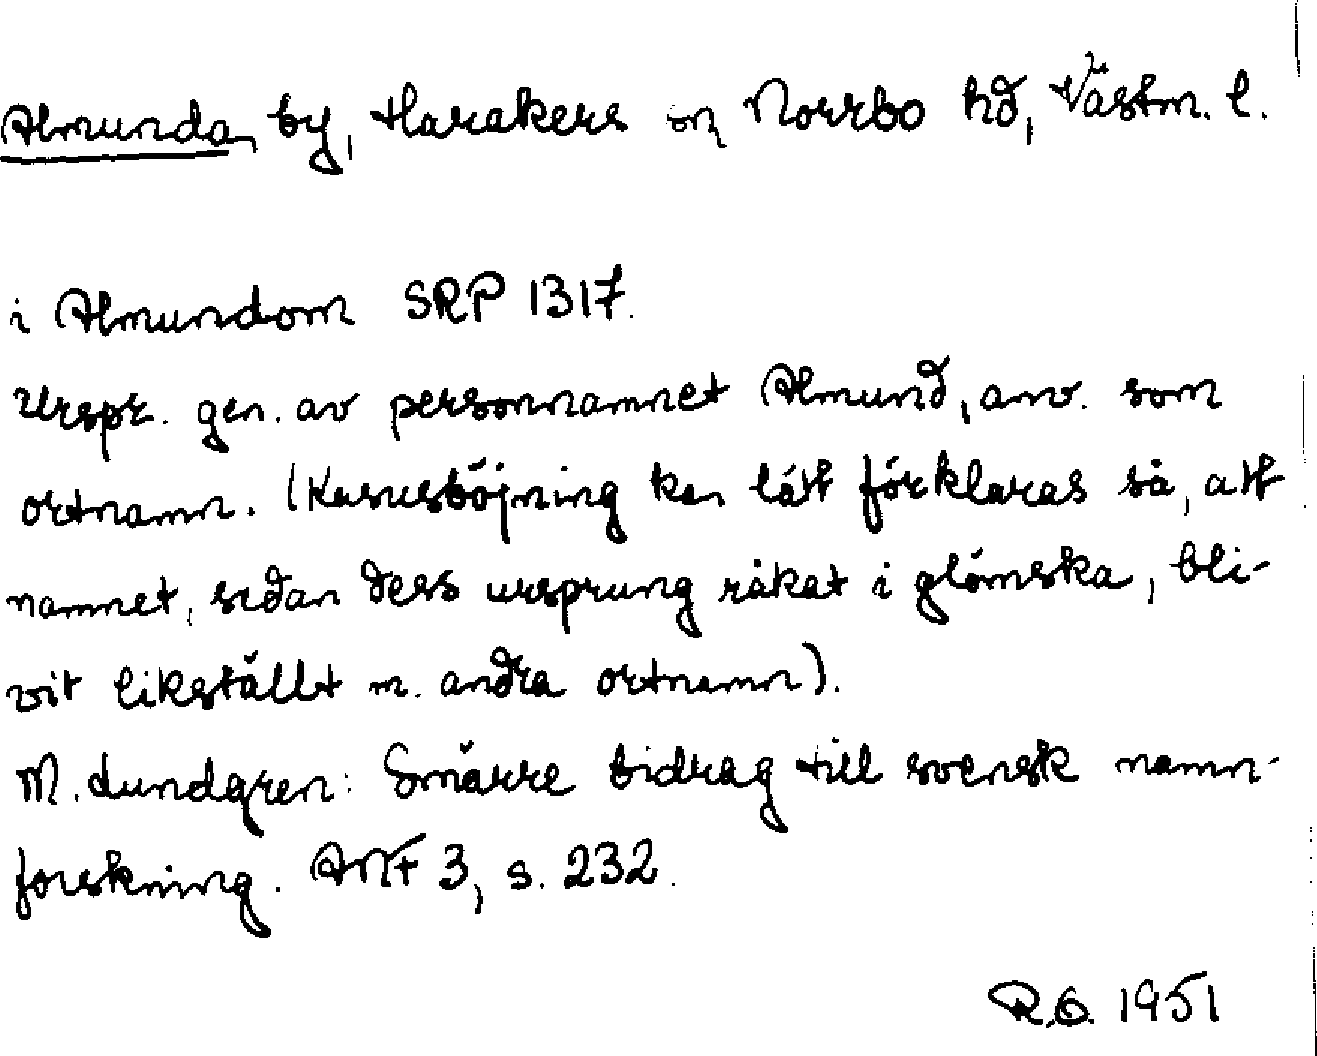 Almunda by, Harakers sn, Norrbo hd, Västm. l.
i Almundom SRP 1317.
Urspr. gen. av personnamnet Almund, anv. som
ortnamn. (Kasusböjning kan lätt förklaras så, att
namnet, sedan dess ursprung råkat i glömska, bli-
vit likställt m. andra ortnamn).
M. Lundgren: Smärre bidrag till svensk namn-
forskning. ANF 3, s. 232.
R.O. 1951